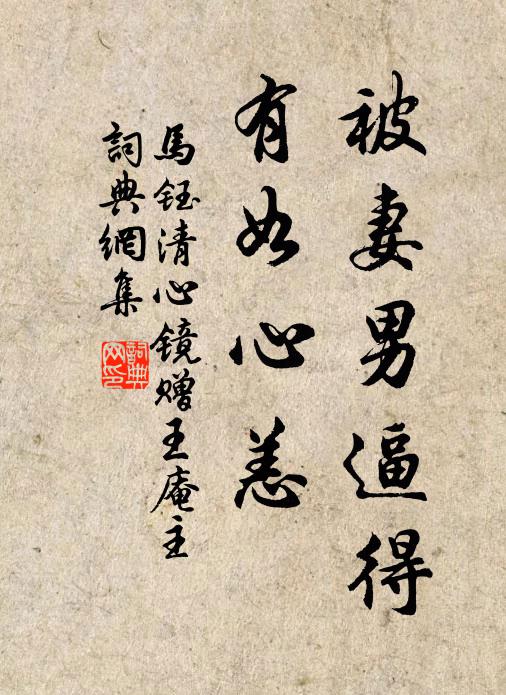 被妻男逼得
有如心恙
馬鈺清心鏡贈王庵主
詞典網集
詞典
网印